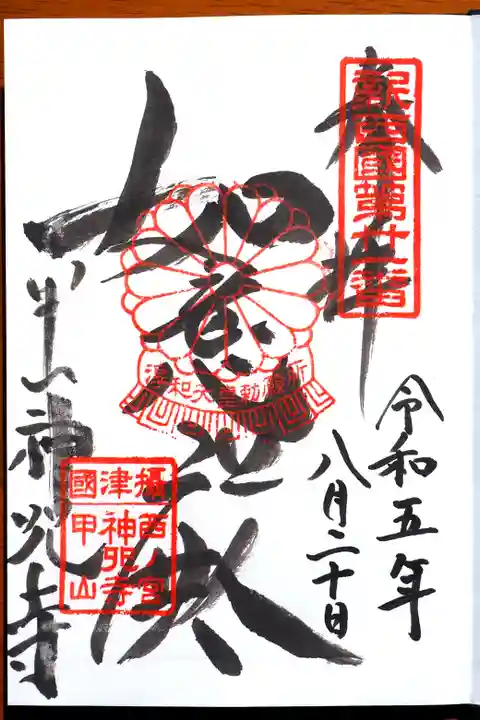 奉拝
新西國第廿一番
令和五年
八月二十日
如意
淳和天皇勅願所
甲山神呪寺
攝津國
西ノ宮
神呪寺
甲山